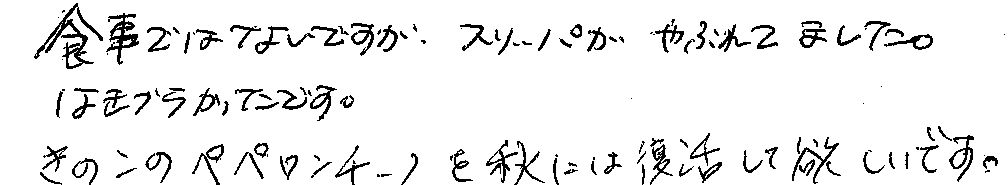 食事ではないですが、スリッパが やぶれてました。
はきずらかったです。
きのこのペペロンチーノを秋には復活して欲しいです。